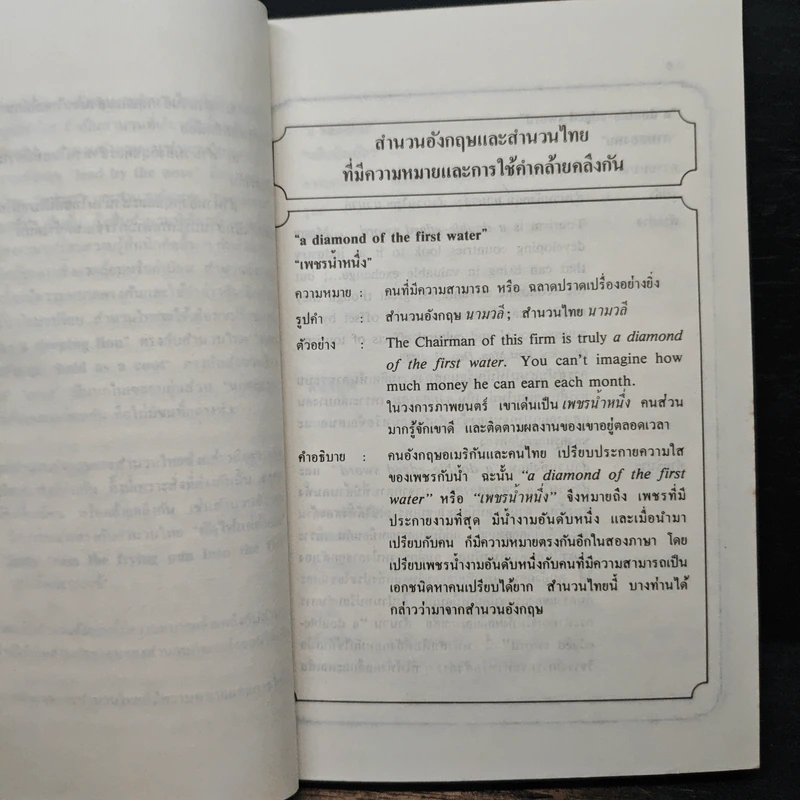 สำนวนอังกฤษและสำนวนไทย
ที่มีความหมายและการใช้คำคล้ายคลึงกัน
"a diamond of the first water"
"เพชรน้ำหนึ่ง"
ความหมาย : คนที่มีความสามารถ หรือ ฉลาดปราดเปรื่องอย่างยิ่ง
รูปคำ : สำนวนอังกฤษ นามวลี; สำนวนไทย นามวลี
ตัวอย่าง : The Chairman of this firm is truly a diamond
of the first water. You can't imagine how
much money he can earn each month.
ในวงการภาพยนตร์ เขาเด่นเป็น เพชรน้ำหนึ่ง คนส่วน
มากรู้จักเขาดี และติดตามผลงานของเขาอยู่ตลอดเวลา
คำอธิบาย : คนอังกฤษอเมริกันและคนไทย เปรียบประกายความใส
ของเพชรกับน้ำ ฉะนั้น "a diamond of the first
water" หรือ "เพชรน้ำหนึ่ง" จึงหมายถึง เพชรที่มี
ประกายงามที่สุด มีน้ำงามอันดับหนึ่ง และเมื่อนำมา
เปรียบกับคน ก็มีความหมายตรงกันอีกในสองภาษา โดย
เปรียบเพชรน้ำงามอันดับหนึ่งกับคนที่มีความสามารถเป็น
เอกชนิดหาคนเปรียบได้ยาก สำนวนไทยนี้ บางท่านได้
กล่าวว่ามาจากสำนวนอังกฤษ